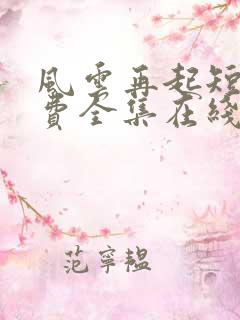 風雲再起短
費全集在綫
范寧韞